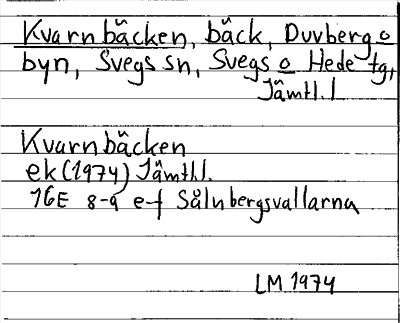 Kvarnbäcken, bäck, Duvberg o
byn, Svegs sn, Svegs o Hede tg,
Jämtl. l
Kvarnbäcken
ek (1974) Jämtl.
16E 8-9 e-f Sålnbergsvallarna
LM 1974